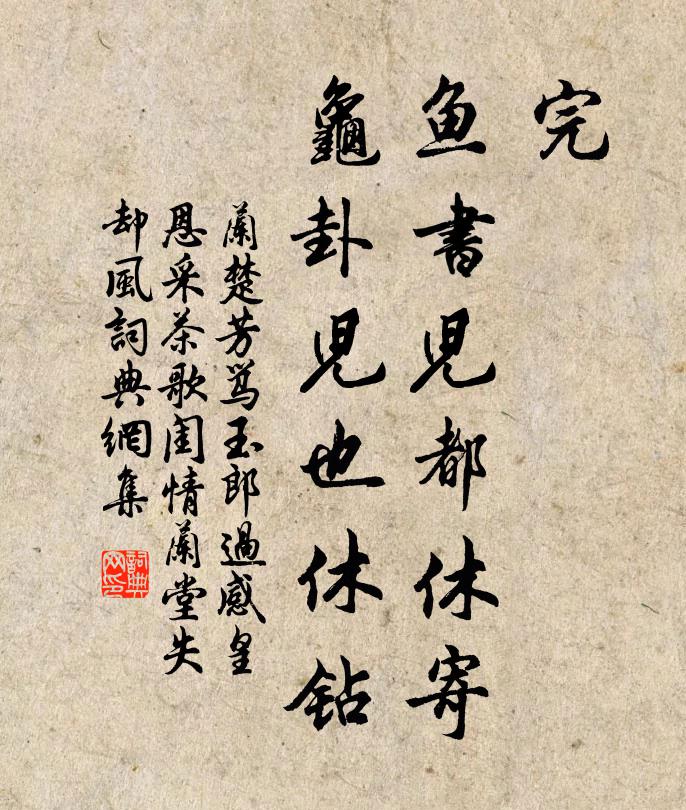 完
鱼書児都休寄
龜卦児也休钻
蘭楚芳罵玉郎過感皇
恩采茶歌闺情蘭堂失
却風詞典網集
詞典
网印